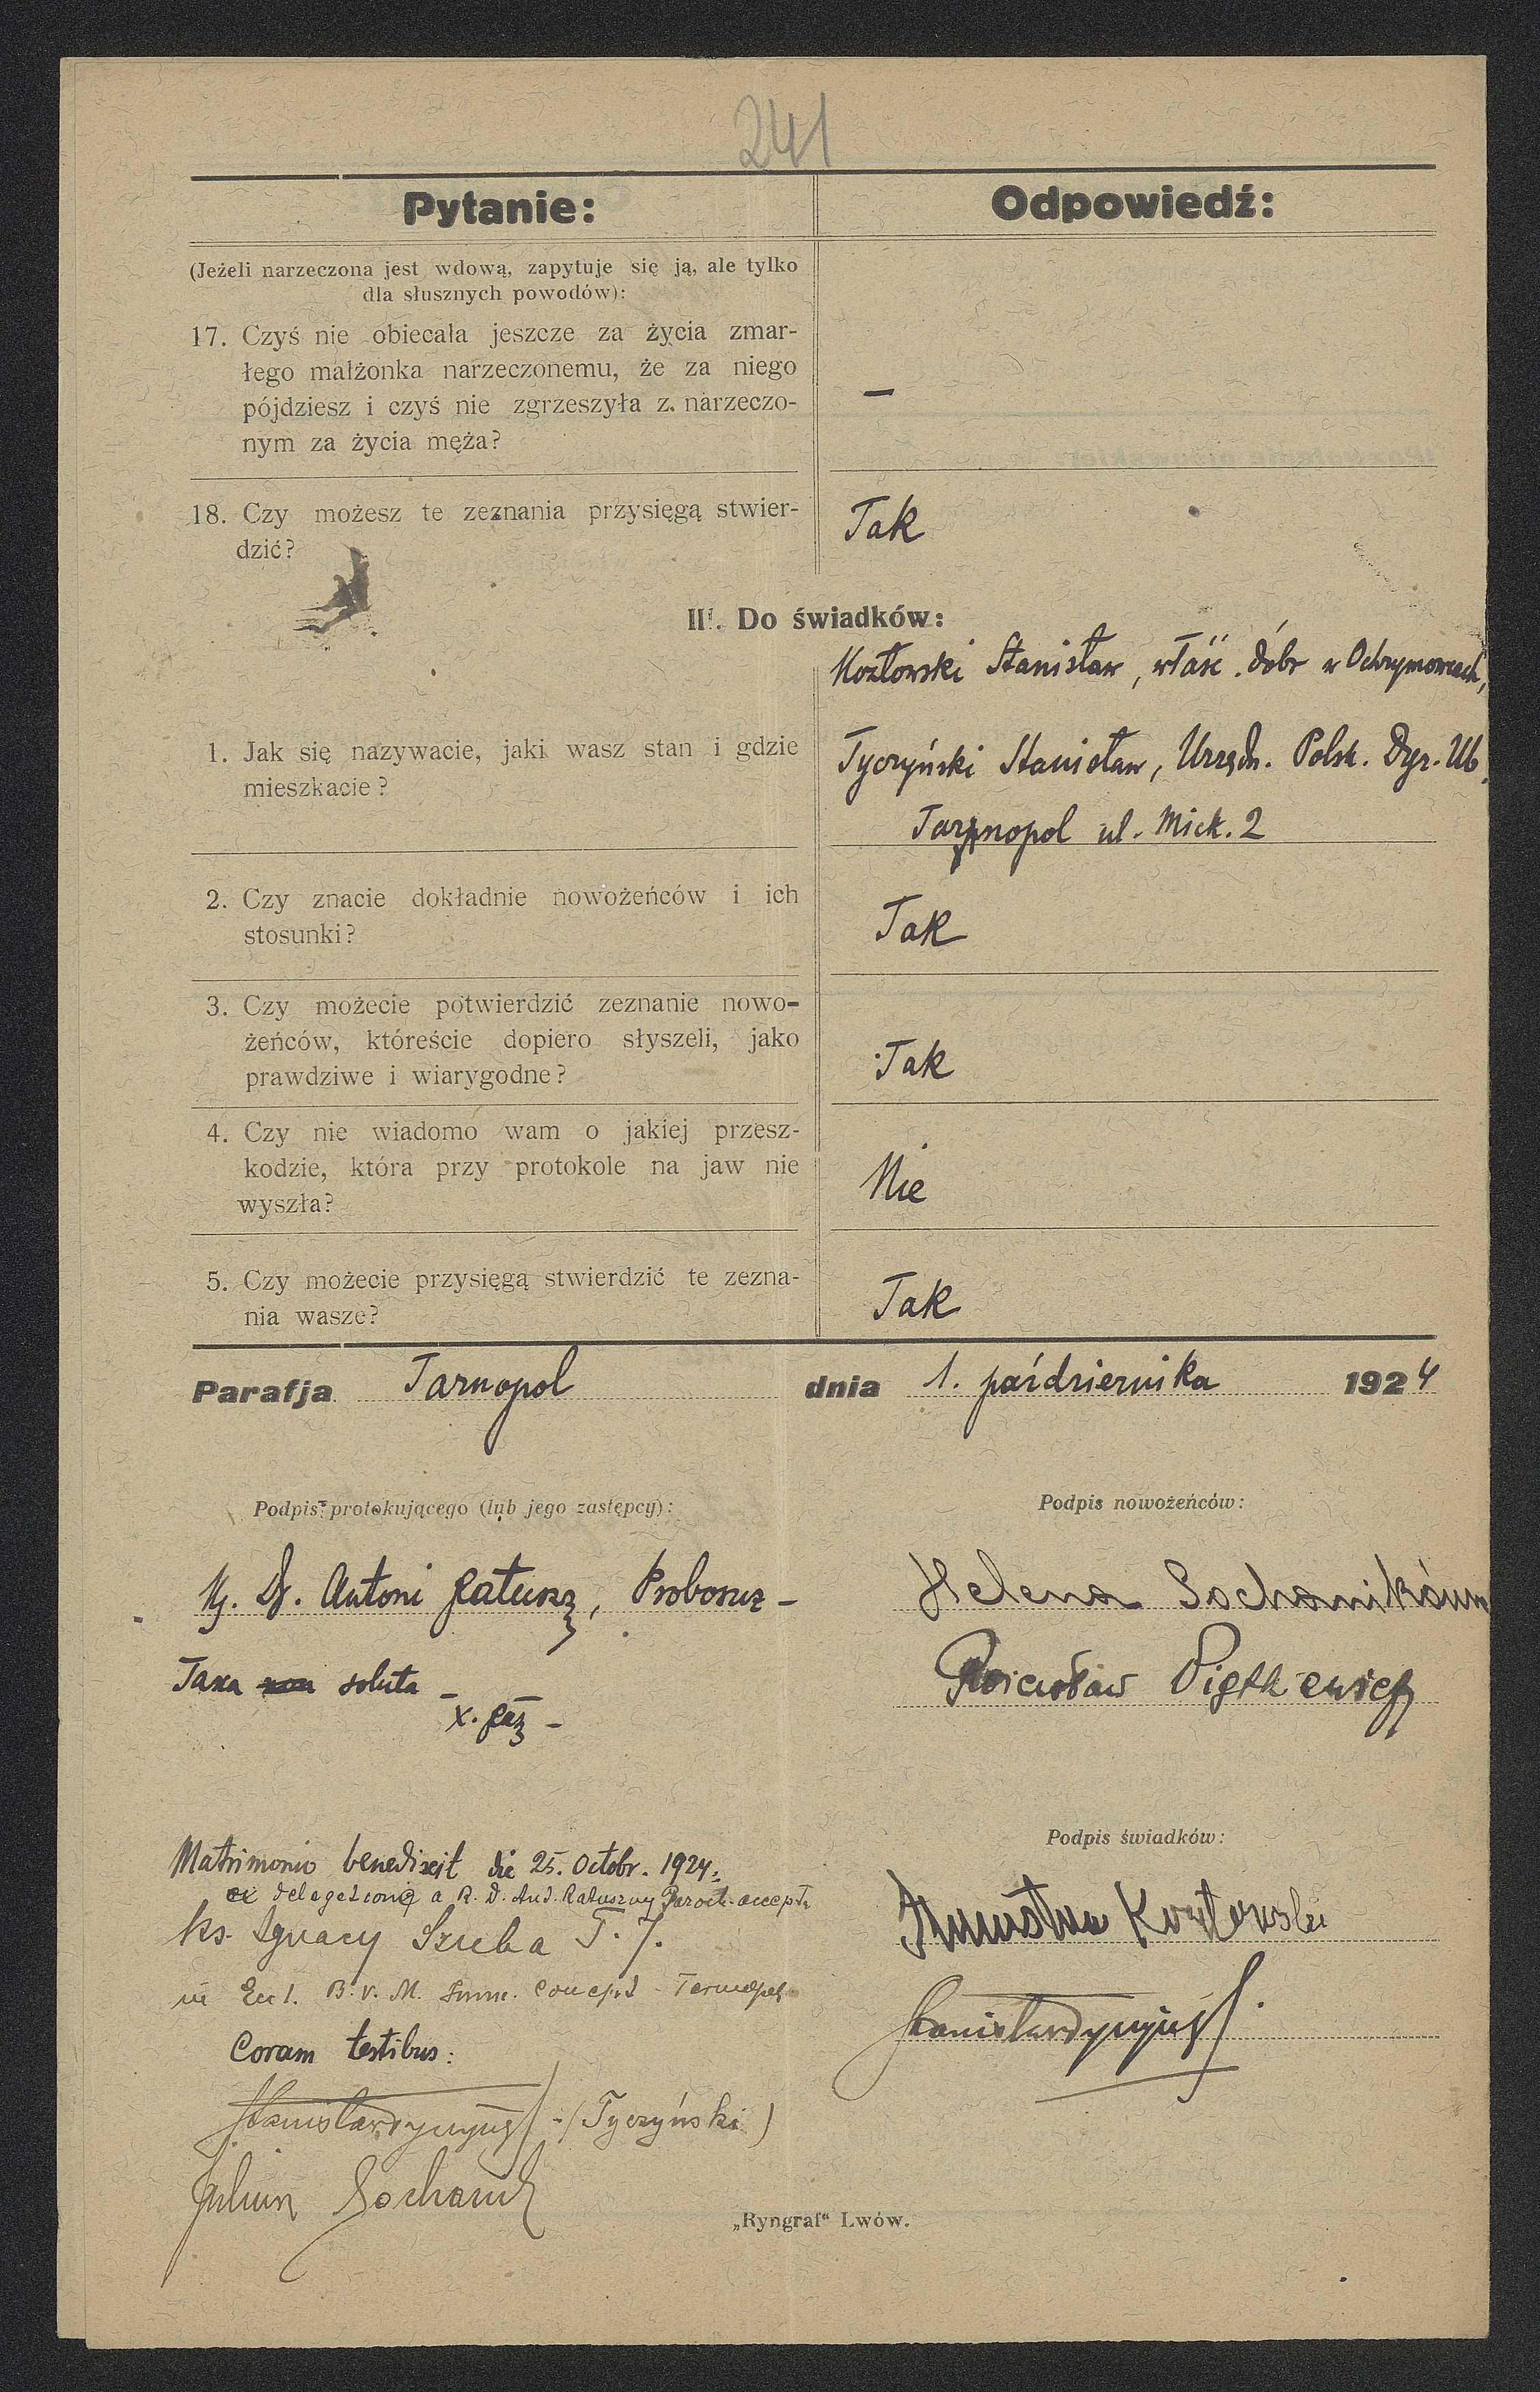 241
Pytanie:
Odpowiedź:
(Jeżeli narzeczona jest wdową, zapytuje się ją, ale tylko
dla słusznych powodów):
17. Czyś nie obiecała jeszcze za życia zmar-
łego małżonka narzeczonemu, że za niego
pójdziesz i czyś nie zgrzeszyła z. narzeczo-
nym za życia męża?
—
18. Czy możesz te zeznania przysięgą stwier-
dzić?
Tak
II. Do świadków:
Kozłowski Stanisław, właśc. dóbr w Ochrymowcach,
1. Jak się nazywacie, jaki wasz stan i gdzie
mieszkacie?
Tyczyński Stanisław, Urzędn. Polsk. Dyr. Ub.
Tarnopol ul. Mick. 2
2. Czy znacie dokładnie nowożeńców i ich
stosunki?
Tak
3. Czy możecie potwierdzić zeznanie nowo-
żeńców, któreście dopiero słyszeli, jako
prawdziwe i wiarygodne?
Tak
4. Czy nie wiadomo wam o jakiej przesz-
kodzie, która przy protokole na jaw nie
wyszła?
Nie
5. Czy możecie przysięgą stwierdzić te zezna-
nia wasze?
Tak
Parafja Tarnopol dnia 1. października 1924
Podpis protokującego (lub jego zastępcy):
Dr. Antoni Ratuszny, Proboszcz –
Taxa non soluta –
Podpis nowożeńców:
Helena Sochanikówn
Piętkiewicz
Matrimonio benedixit die 25. Octobr. 1924.
ex delegatione a R. D. Ant. Ratuszny Paroch. accepta
ks. Ignacy Szuba T. J.
in Eccl. B. V. M. Imm. Concept. Tarnopol
Coram testibus:
Stanisław Tyczyński – (Tyczyński)
Julian Sochanik
Podpis świadków:
Stanisław Kozłowski
Stanisław Tyczyński
„Ryngraf“ Lwów.